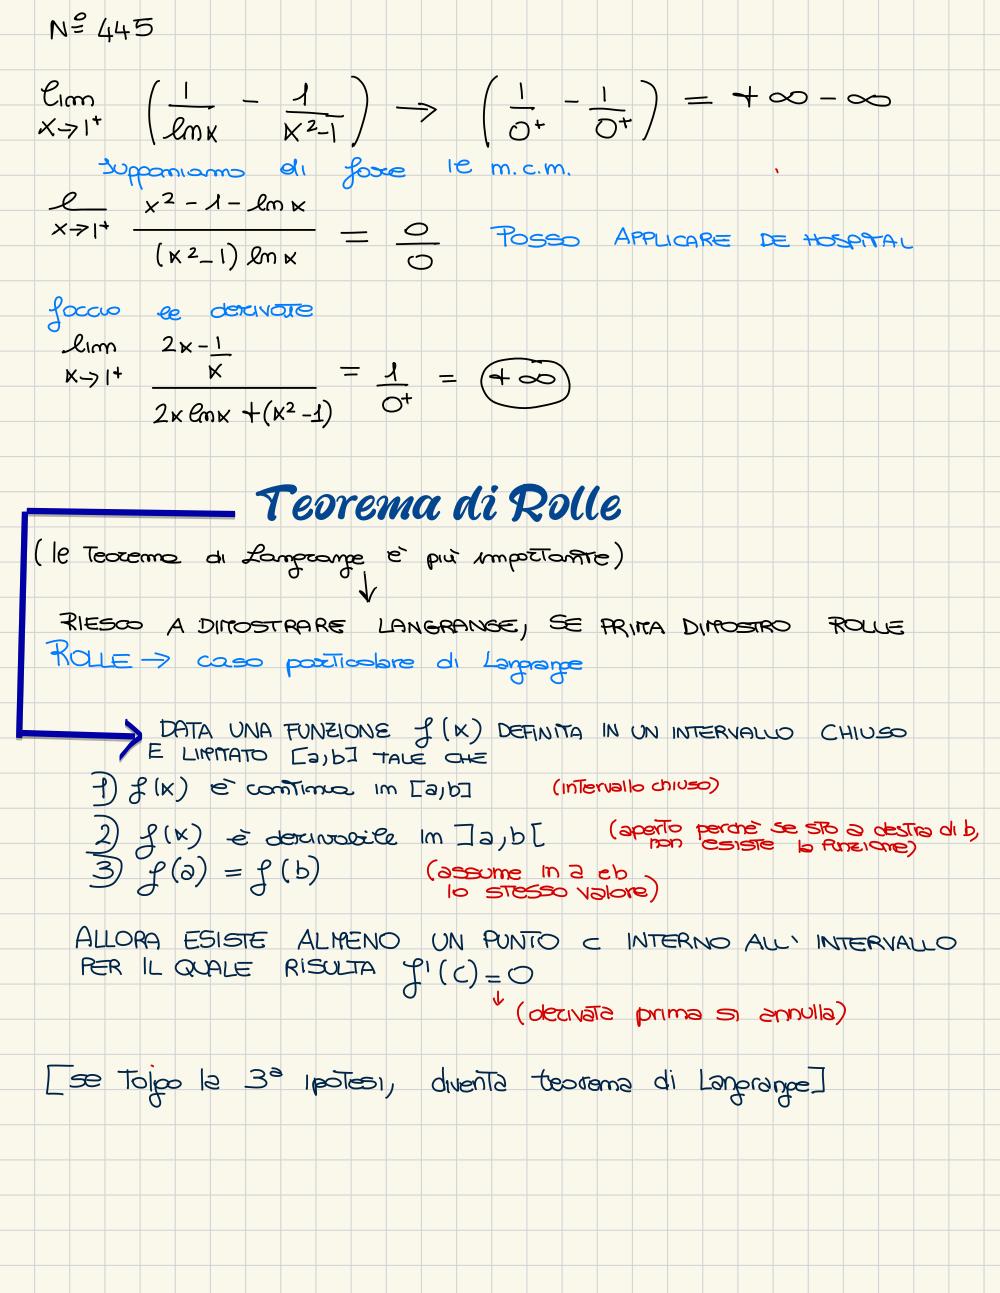 Nº 445
lim x→1⁺ (1/ln x − 1/(x²−1)) → (1/0⁺ − 1/0⁺) = +∞ − ∞
supponiamo di fare le m.c.m.
l x→1⁺ (x² − 1 − ln x)/((x²−1) ln x) = 0/0 POSSO APPLICARE DE HOSPITAL
faccio le derivate
lim x→1⁺ (2x − 1/x)/(2x ln x + (x²−1)) = 1/0⁺ = +∞
Teorema di Rolle
(le Teorema di Langrange è più importante)
↓
RIESCO A DIMOSTRARE LANGRANGE, SE PRIMA DIMOSTRO ROLLE
ROLLE → caso particolare di Langrange
DATA UNA FUNZIONE f(x) DEFINITA IN UN INTERVALLO CHIUSO
E LIMITATO [a,b] TALE CHE
1) f(x) è continua in [a,b] (intervallo chiuso)
2) f(x) è derivabile in ]a,b[ (aperto perchè se sto a destra di b,
non esiste la funzione)
3) f(a) = f(b) (assume in a e b
lo stesso valore)
ALLORA ESISTE ALMENO UN PUNTO C INTERNO ALL' INTERVALLO
PER IL QUALE RISULTA f'(c) = 0
↓ (derivata prima si annulla)
[se Tolgo la 3ª ipotesi, diventa teorema di Langrange]